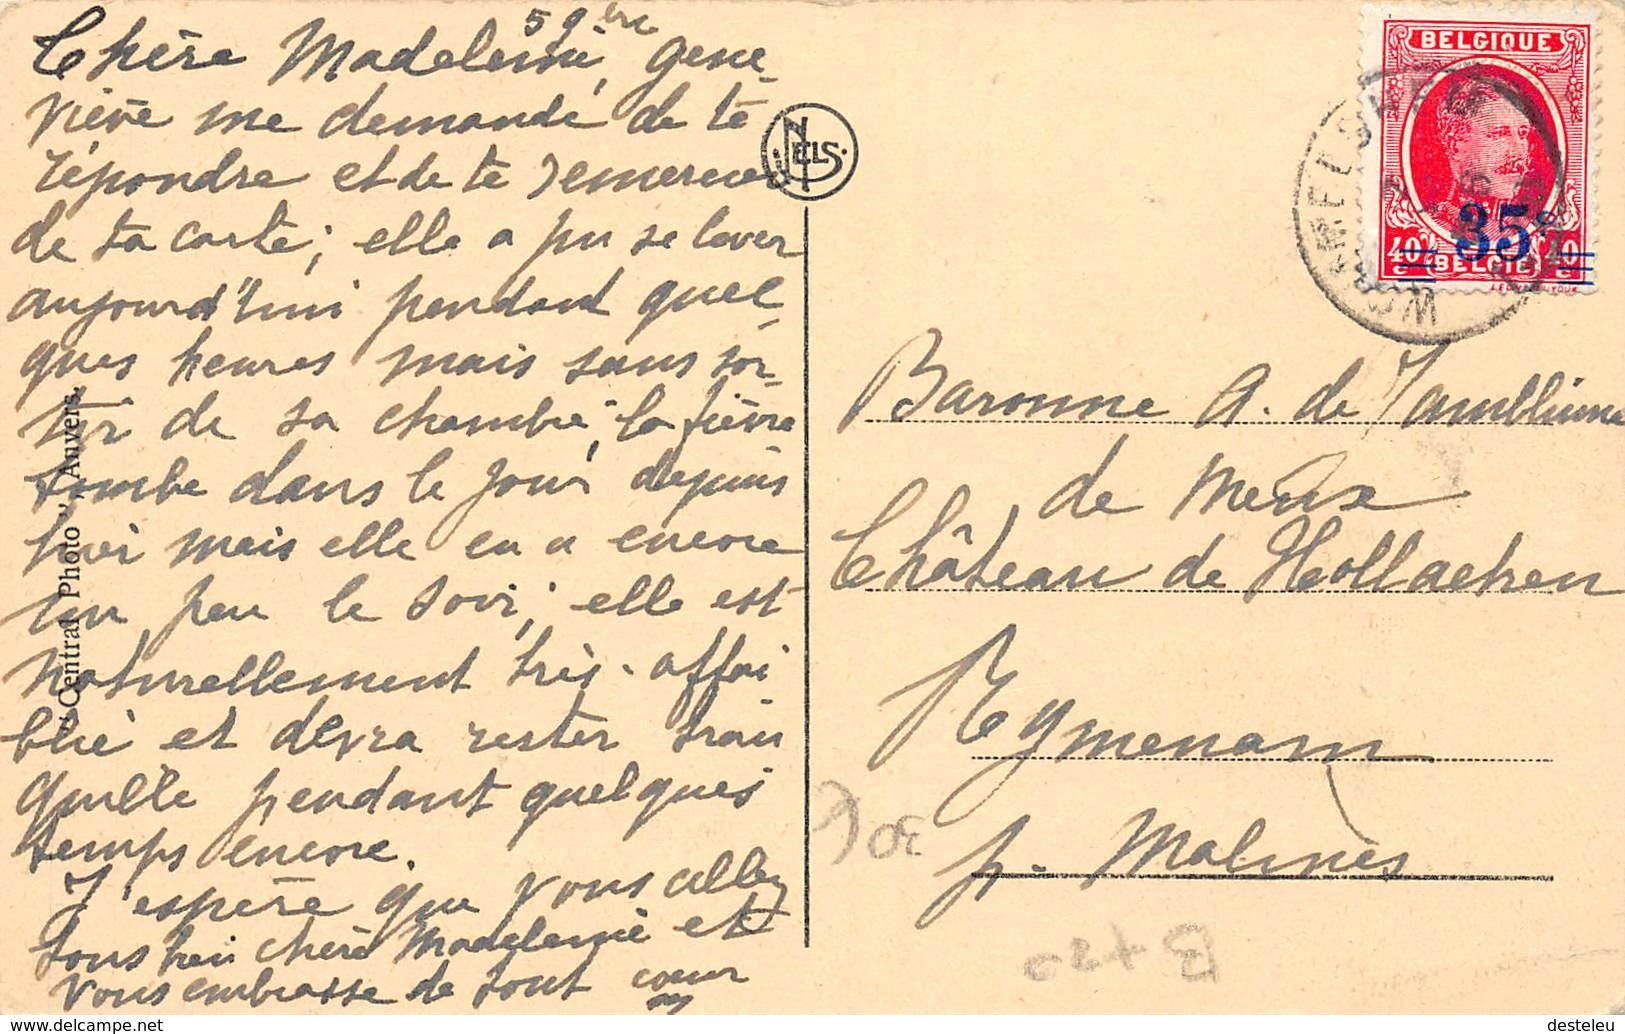 5 9bre
Chère Madeleine, Gene-
viève me demande de te
répondre et de te remercier
de ta carte; elle a pu se lever
aujourd'hui pendant quel-
ques heures mais sans sor-
tir de sa chambre; la fièvre
tombe dans le jour depuis
hier mais elle en a encore
un peu le soir; elle est
naturellement très affai
blie et devra rester tran
quille pendant quelques
temps encore.
J'espère que vous allez
tous bien chère Madeleine et
vous embrasse de tout coeur
"Central Photo", Anvers.
NELS
BELGIQUE
35c
40c BELGIE 40c
WOMMELGEM
Baronne A. de
de Meux
Château de Hollaeken
Rymenam
p. Malines
30
B +20
delcampe.net
desteleu